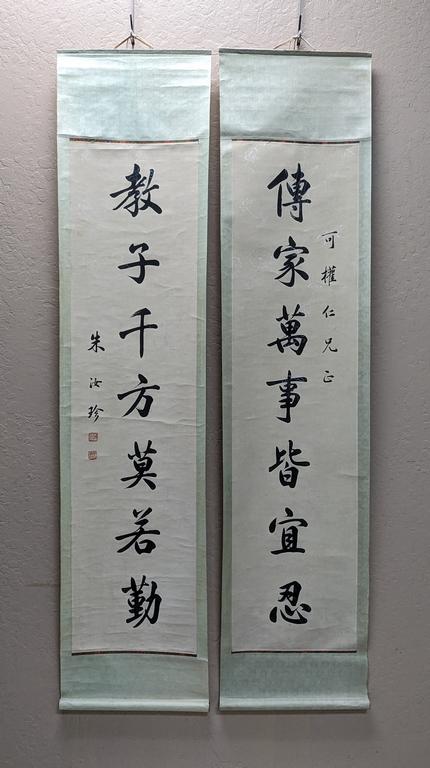 可權仁兄正
傳家萬事皆宜忍
教子千方莫若勤
朱汝珍